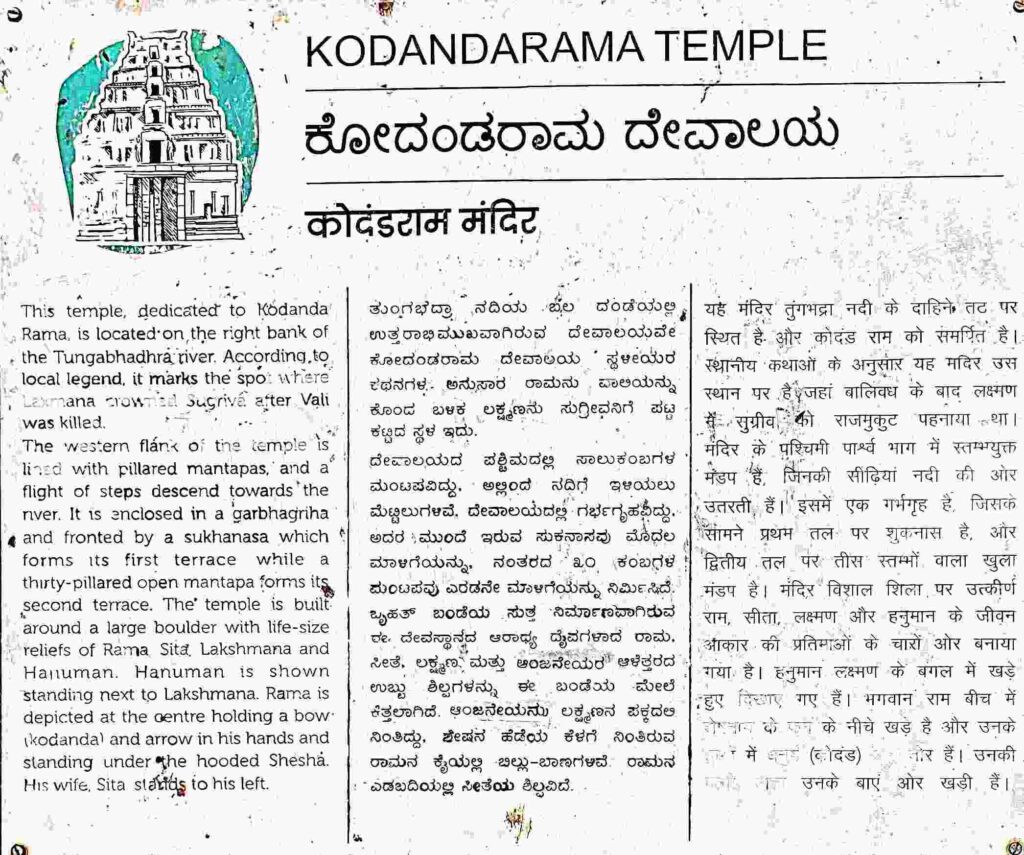 KODANDARAMA TEMPLE
ಕೋದಂಡರಾಮ ದೇವಾಲಯ
कोदंडराम मंदिर
This temple, dedicated to Kodanda
Rama, is located on the right bank of
the Tungabhadhra river. According to
local legend, it marks the spot where
Laxmana crowned Sugriva after Vali
was killed.
The western flank of the temple is
lined with pillared mantapas, and a
flight of steps descend towards the
river. It is enclosed in a garbhagriha
and fronted by a sukhanasa which
forms its first terrace while a
thirty-pillared open mantapa forms its
second terrace. The temple is built
around a large boulder with life-size
reliefs of Rama, Sita, Lakshmana and
Hanuman. Hanuman is shown
standing next to Lakshmana. Rama is
depicted at the centre holding a bow
(kodanda) and arrow in his hands and
standing under the hooded Shesha.
His wife, Sita stands to his left.
ತುಂಗಭದ್ರಾ ನದಿಯ ಬಲ ದಂಡೆಯಲ್ಲಿ
ಉತ್ತರಾಭಿಮುಖವಾಗಿರುವ ದೇವಾಲಯವೇ
ಕೋದಂಡರಾಮ ದೇವಾಲಯ ಸ್ಥಳೀಯರ
ಕಥನಗಳ ಅನುಸಾರ ರಾಮನು ವಾಲಿಯನ್ನು
ಕೊಂದ ಬಳಿಕ ಲಕ್ಷ್ಮಣನು ಸುಗ್ರೀವನಿಗೆ ಪಟ್ಟ
ಕಟ್ಟಿದ ಸ್ಥಳ ಇದು.
ದೇವಾಲಯದ ಪಶ್ಚಿಮದಲ್ಲಿ ಸಾಲುಕಂಬಗಳ
ಮಂಟಪವಿದ್ದು, ಅಲ್ಲಿಂದ ನದಿಗೆ ಇಳಿಯಲು
ಮೆಟ್ಟಿಲುಗಳಿವೆ. ದೇವಾಲಯದಲ್ಲಿ ಗರ್ಭಗೃಹವಿದ್ದು,
ಅದರ ಮುಂದೆ ಇರುವ ಸುಕನಾಸವು ಮೊದಲ
ಮಾಳಿಗೆಯನ್ನು, ನಂತರದ ೩೦ ಕಂಬಗಳ
ಮಂಟಪವು ಎರಡನೇ ಮಾಳಿಗೆಯನ್ನು ನಿರ್ಮಿಸಿದೆ.
ಬೃಹತ್ ಬಂಡೆಯ ಸುತ್ತ ನಿರ್ಮಾಣವಾಗಿರುವ
ಈ ದೇವಸ್ಥಾನದ ಆರಾಧ್ಯ ದೈವಗಳಾದ ರಾಮ,
ಸೀತೆ, ಲಕ್ಷ್ಮಣ ಮತ್ತು ಆಂಜನೇಯರ ಆಳೆತ್ತರದ
ಉಬ್ಬು ಶಿಲ್ಪಗಳನ್ನು ಈ ಬಂಡೆಯ ಮೇಲೆ
ಕೆತ್ತಲಾಗಿದೆ. ಆಂಜನೇಯನು ಲಕ್ಷ್ಮಣನ ಪಕ್ಕದಲಿ
ನಿಂತಿದ್ದು, ಶೇಷನ ಹೆಡೆಯ ಕೆಳಗೆ ನಿಂತಿರುವ
ರಾಮನ ಕೈಯಲ್ಲಿ ಬಿಲ್ಲು-ಬಾಣಗಳಿವೆ. ರಾಮನ
ಎಡಬದಿಯಲ್ಲಿ ಸೀತೆಯ ಶಿಲ್ಪವಿದೆ.
यह मंदिर तुंगभद्रा नदी के दाहिने तट पर
स्थित है और कोदंड राम को समर्पित है।
स्थानीय कथाओं के अनुसार यह मंदिर उस
स्थान पर है जहां बालिवध के बाद लक्ष्मण
ने सुग्रीव को राजमुकुट पहनाया था।
मंदिर के पश्चिमी पार्श्व भाग में स्तम्भयुक्त
मंडप हैं, जिनकी सीढ़ियां नदी की ओर
उतरती हैं। इसमें एक गर्भगृह है, जिसके
सामने प्रथम तल पर शुकनास है, और
द्वितीय तल पर तीस स्तम्भों वाला खुला
मंडप है। मंदिर विशाल शिला पर उत्कीर्ण
राम, सीता, लक्ष्मण और हनुमान के जीवन
आकार की प्रतिमाओं के चारों ओर बनाया
गया है। हनुमान लक्ष्मण के बगल में खड़े
हुए दिखाए गए हैं। भगवान राम बीच में
के नीचे खड़े है और उनके
में (कोदंड) और हैं। उनकी
उनके बाएं ओर खड़ी हैं।